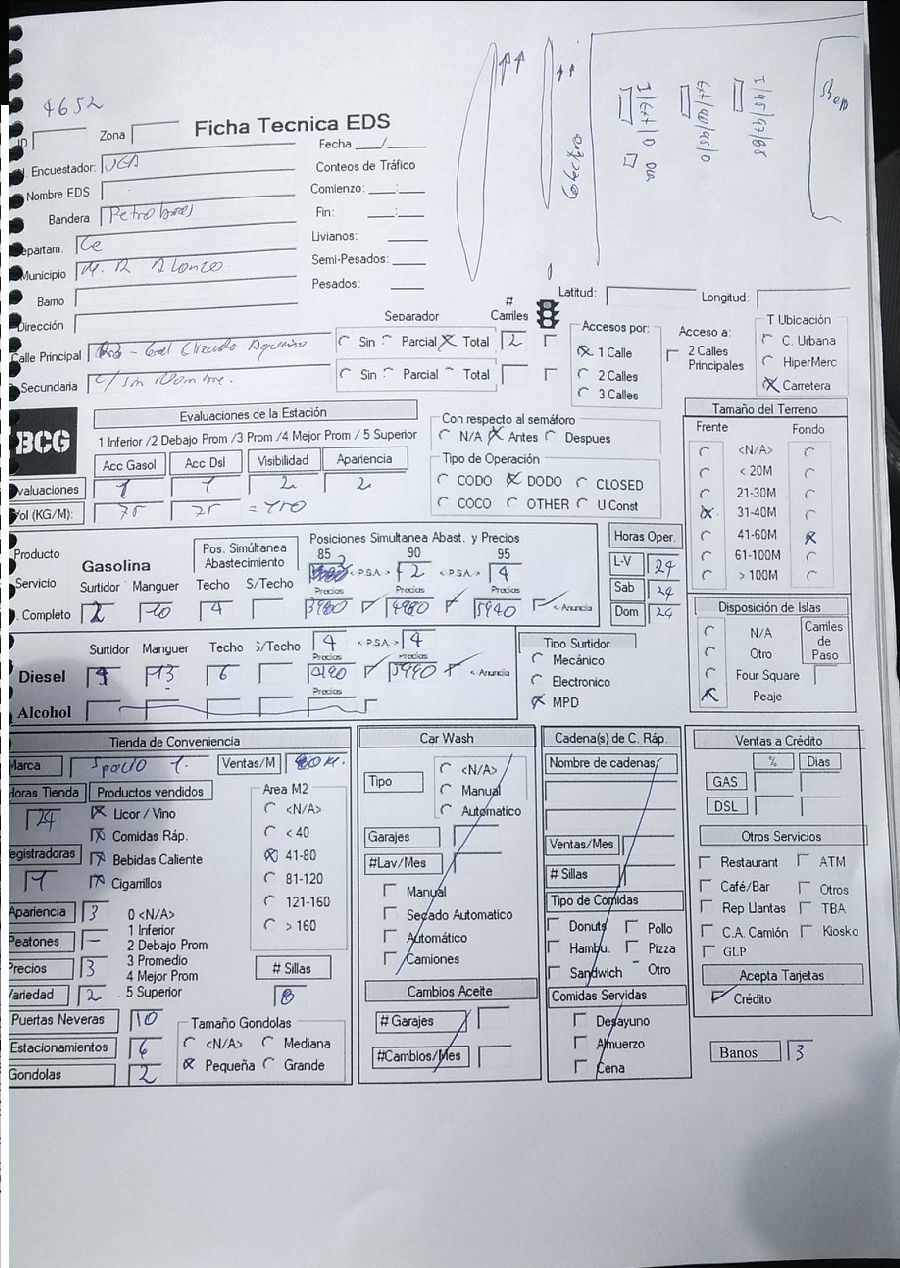 4652
ID
Zona
Ficha Tecnica EDS
Fecha ___/___
. Encuestador: JGA
Conteos de Tráfico
Nombre EDS
Comienzo: ___:___
Bandera Petrobras
Fin: ___:___
epartam. Ce
Livianos: ____
Municipio M. R. Alonzo.
Semi-Pesados: ____
Barrio
Pesados: ____
Dirección
Shop
I/95/97/85
Ext/90/95/D
I/Ext/D
Separador
# Carriles
Latitud:
Longitud:
Calle Principal - Gral Elizardo Aquino
Sin Parcial Total 2
Secundaria c/ sin Nombre.
Sin Parcial Total
Accesos por:
1 Calle
2 Calles
3 Calles
Acceso a:
2 Calles Principales
T Ubicación
C. Urbana
HiperMerc
Carretera
BCG
Evaluaciones de la Estación
1 Inferior /2 Debajo Prom /3 Prom /4 Mejor Prom / 5 Superior
Acc Gasol Acc Dsl Visibilidad Apariencia
valuaciones 1 1 2 2
ol (KG/M): 75 75 = 150
Con respecto al semáforo
N/A Antes Despues
Tipo de Operación
CODO DODO CLOSED
COCO OTHER UConst
Tamaño del Terreno
Frente Fondo
<N/A>
< 20M
21-30M
31-40M
41-60M
61-100M
> 100M
Producto
Servicio
. Completo
Gasolina
Pos. Simúltanea Abastecimiento
Posiciones Simultanea Abast. y Precios
85 90 95
2 < P.S.A. > 2 < P.S.A. > 4
Surtidor Manguer Techo S/Techo
2 10 4
Precios Precios Precios
4990 5940 < Anuncia
Horas Oper.
L-V 24
Sab 24
Dom 24
Disposición de Islas
N/A
Otro
Four Square
Peaje
Carriles de Paso
Surtidor Manguer Techo S/Techo
4 < P.S.A. > 4
Precios Precios
Diesel 4 13 6 < Anuncia
Precios
Alcohol
Tipo Surtidor
Mecánico
Electronico
MPD
Tienda de Conveniencia
Marca Spacio 1. Ventas/M 80 M.
Horas Tienda
24
Productos vendidos
Licor / Vino
Comidas Ráp.
Bebidas Caliente
Cigarrillos
Registradoras
1
Area M2
<N/A>
< 40
41-80
81-120
121-160
> 160
Apariencia 3
Peatones -
Precios 3
Variedad 2
0 <N/A>
1 Inferior
2 Debajo Prom
3 Promedio
4 Mejor Prom
5 Superior
# Sillas
8
Puertas Neveras 10
Estacionamientos 6
Gondolas 2
Tamaño Gondolas
<N/A> Mediana
Pequeña Grande
Car Wash
Tipo
<N/A>
Manual
Automatico
Garajes
#Lav/Mes
Manual
Secado Automatico
Automático
Camiones
Cambios Aceite
# Garajes
#Cambios/Mes
Cadena(s) de C. Ráp.
Nombre de cadenas
Ventas/Mes
# Sillas
Tipo de Comidas
Donuts Pollo
Hambu. Pizza
Sandwich Otro
Comidas Servidas
Desayuno
Almuerzo
Cena
Ventas a Crédito
% Dias
GAS
DSL
Otros Servicios
Restaurant ATM
Café/Bar Otros
Rep Llantas TBA
C.A. Camión Kiosko
GLP
Acepta Tarjetas
Crédito
Banos 3